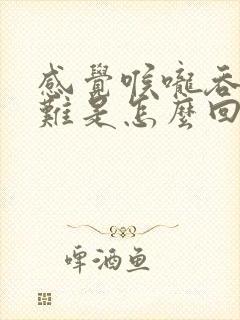 感覺喉嚨吞
難是怎麼回
啤酒魚